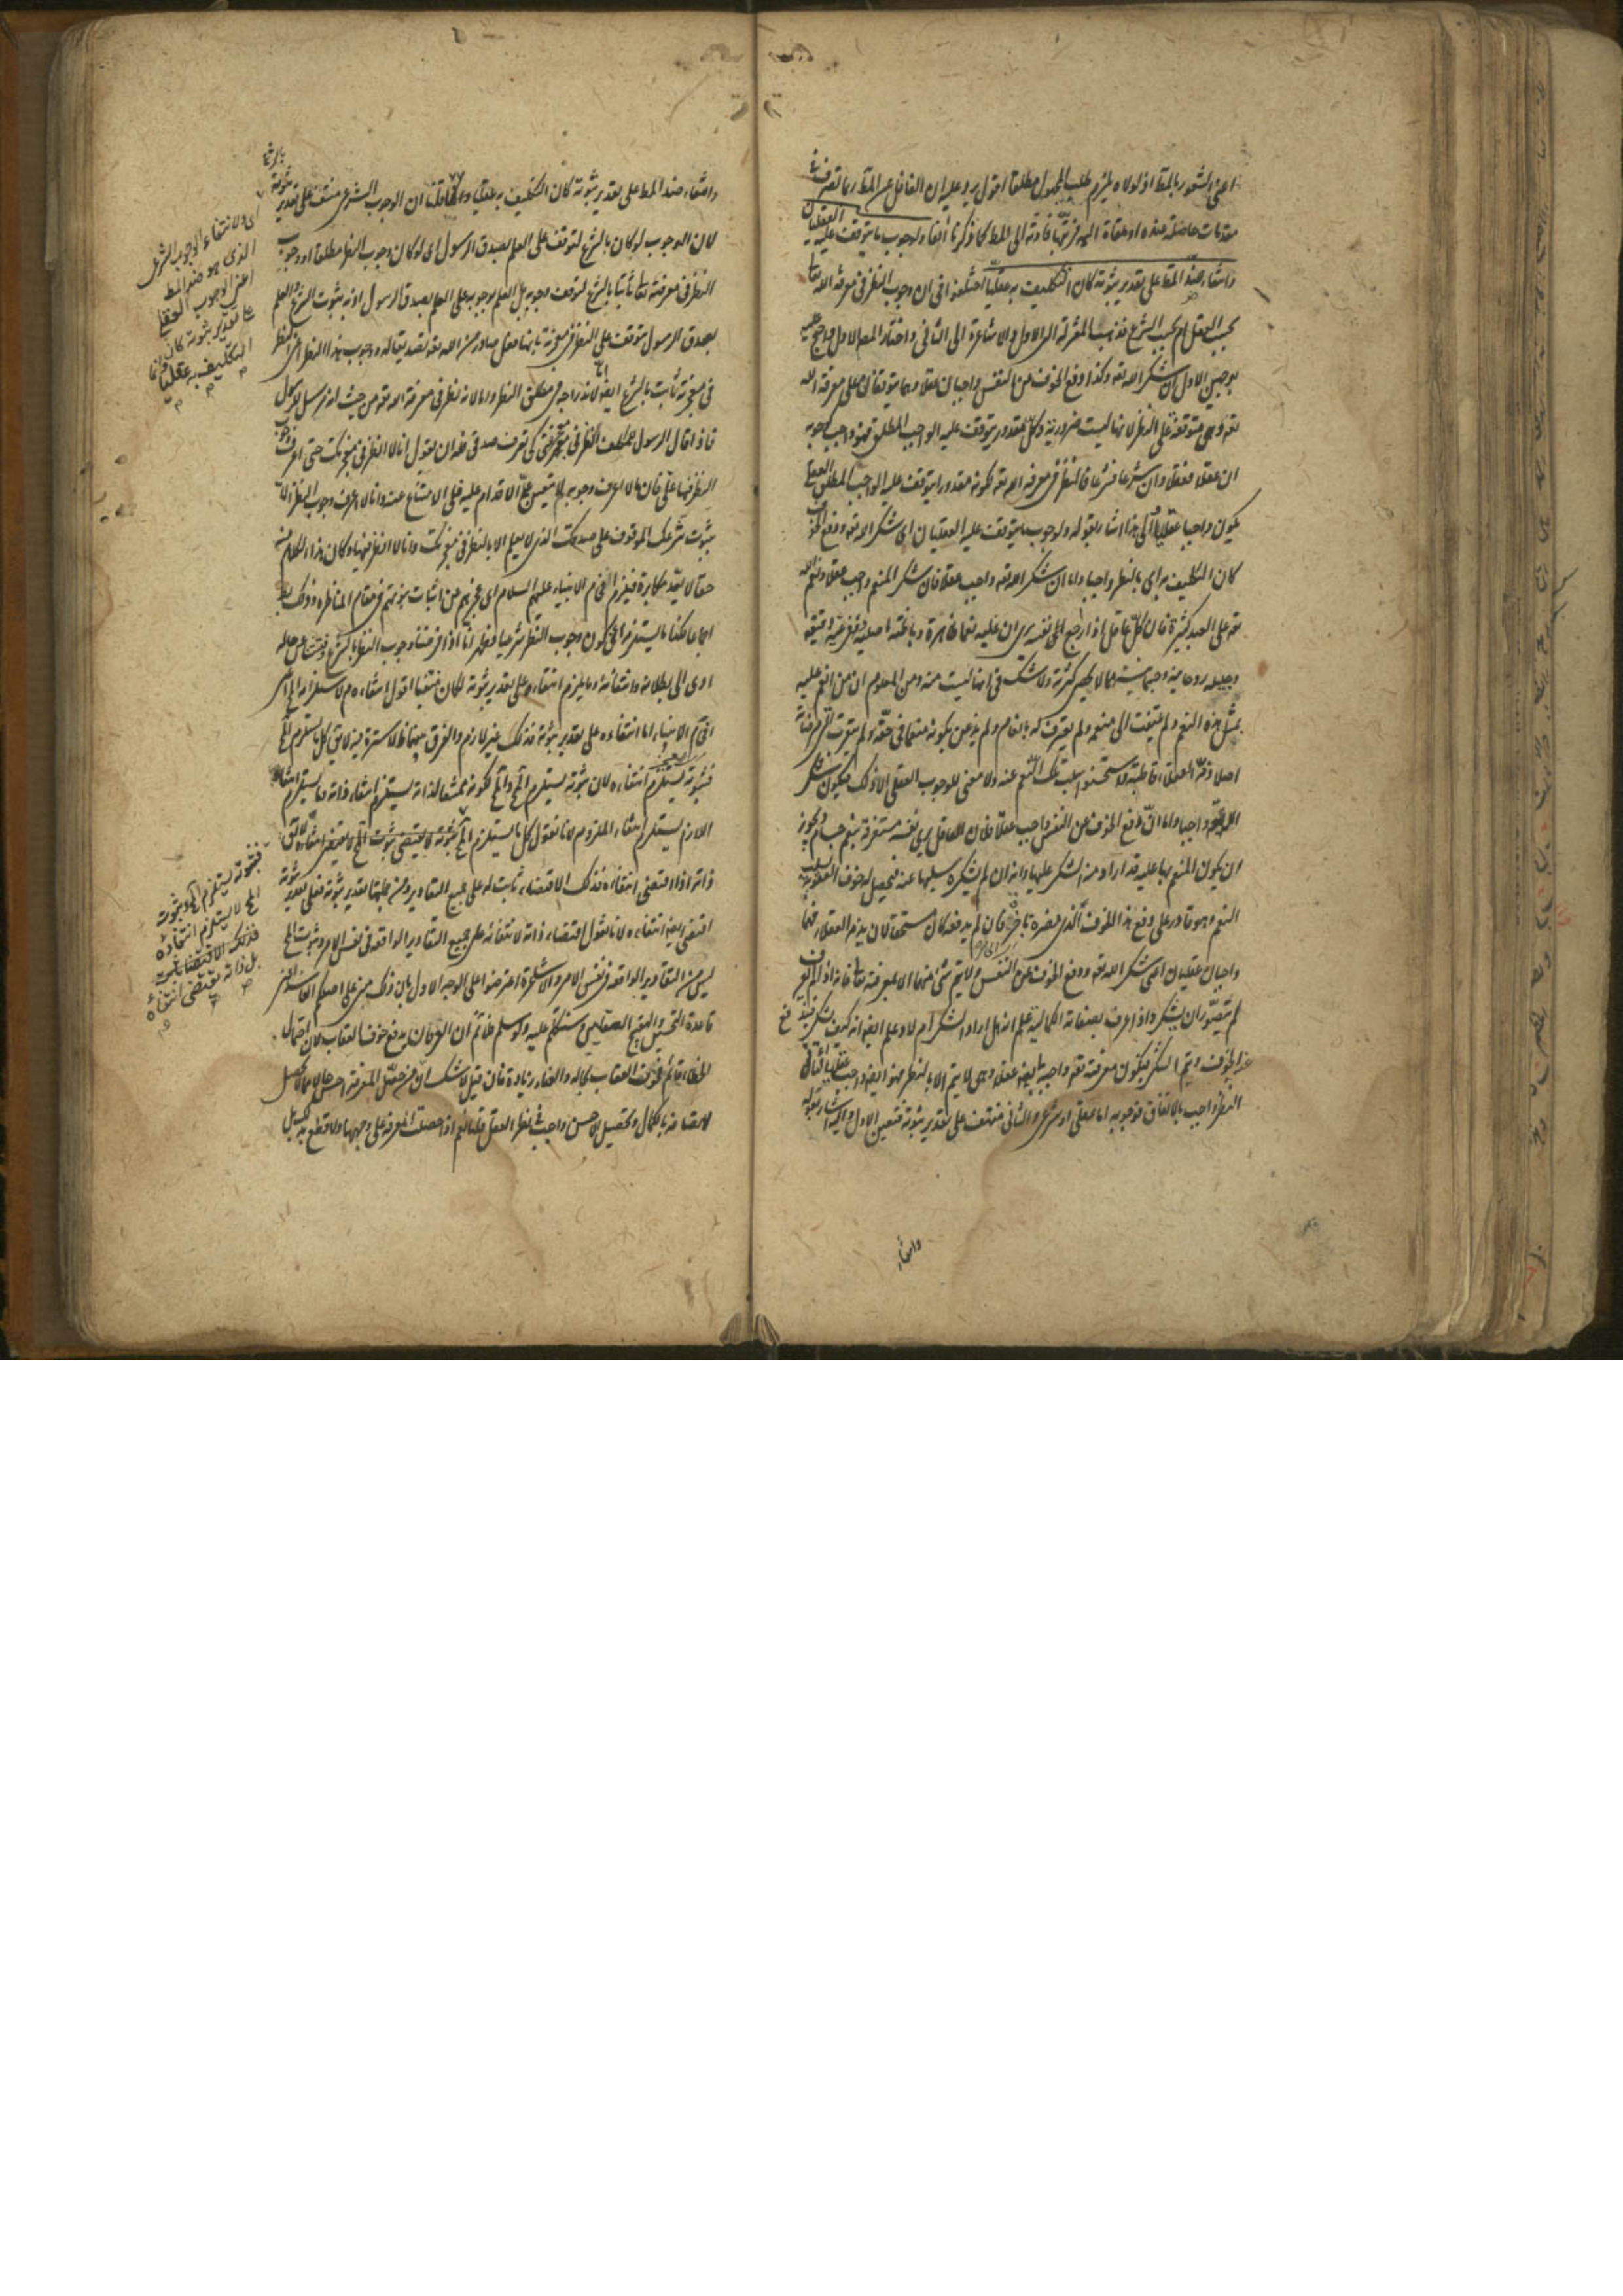 اعنى الشعور بالمط اذ لولاه لزم طلب المجهول مطلقا اقول يرد عليه ان الغافل عن المط ربما تصرف فى
مقدمات حاصلة عنده او ملقاة اليه فرتبها فادته الى المط كما ذكرنا آنفا ولوجوب ما يتوقف عليه العقليان
وانتفاء ضد المط على تقدير ثبوته كان التكليف به عقليا اختلفوا فى ان وجوب النظر فى معرفة الله تعا
بحسب العقل ام بحسب الشرع فذهب المعتزلة الى الاول والاشاعرة الى الثانى واختار المص الاول واحتج عليه
بوجهين الاول ان شكر الله تعه وكذا دفع الخوف عن النفس واجبان عقلا وهما يتوقفان على معرفة الله
تعه وهى متوقفة على النظر لانها ليست ضرورية وكل مقدور يتوقف عليه الواجب المطلق فهو واجب كوجوبه
ان عقلا فعقلا وان شرعا فشرعا فالنظر فى معرفة الله تعه لكونه مقدورا يتوقف عليه الواجب المطلق العقلى
يكون واجبا عقلا والى هذا اشار بقوله ولوجوب ما يتوقف عليه العقليان اى شكر الله تعه ودفع الخوف
كان التكليف به اى بالنظر واجبا واما ان شكر الله تعه واجب عقلا فلان شكر المنعم واجب عقلا ونعم الله
تعه على العبد كثيرة فان كل عاقل اذا راجع الى نفسه يرى ان عليه نعما ظاهرة وباطنة اصلية وفرعية دقيقة
وجليلة روحانية وجسمانية مما لا يحصى كثرة ولا شك فى انها ليست منه ومن المعلوم ان من انعم عليه
بمثل هذه النعم ولم يلتفت الى منعمه ولم يعترف له بانعام ولم يذعن بكونه منعما فى حقه ولم يتقرب الى مرضاته
اصلا ذمه العقلاء قاطبة واستحسنوا سلب تلك النعم عنه ولا معنى للوجوب العقلى الا ذلك فيكون شكر
الله تعه واجبا واما ان دفع الخوف عن النفس واجب عقلا فلان العاقل يرى نفسه مستغرقة بنعم جسام ويجوز
ان يكون المنعم بها عليه قد اراد منه الشكر عليها وانه ان لم يشكره سلبها عنه فيحصل له خوف العقوبة بسلب
النعم وهو قادر على دفع هذا الخوف الذى مضرة ناجزة فان لم يدفعه كان مستحقا لان يذمه العقلاء فهما
واجبان عقليان اعنى شكر الله تعه ودفع الخوف عن النفس ولا يتم شئ منهما الا بمعرفته تعا فانه اذا لم يعرف
لم يتصور ان يشكر واذا عرف بصفاته الكمالية علم انه هل اراد الشكر ام لا وعلم ايضا انه كيف يشكر فيندفع
عنه الخوف ويتم الشكر فيكون معرفته تعه واجبة ايضا عقلا وهى لا يتم الا بالنظر فهو ايضا واجب عقلا الثانى
النظر واجب بالاتفاق فوجوبه اما عقلى او شرعى والثانى منتف على تقدير ثبوته فتعين الاول واليه اشار بقوله
وانتفاء
وانتفاء ضد المط على تقدير ثبوته كان التكليف به عقليا وانما قلنا ان الوجوب الشرعى منتف على تقدير ثبوته
لان الوجوب لو كان بالشرع لتوقف على العلم بصدق الرسول اى لو كان وجوب النظر مطلقا او وجوب
النظر فى معرفته تعا ثابتا بالشرع لتوقف وجوبه بل العلم بوجوبه على العلم بصدق الرسول اذ به يثبت الشرع والعلم
بصدق الرسول يتوقف على النظر فى معجزته بانها فعل صادر من الله تعه تصديقا له ووجوب هذا النظر اعنى النظر
فى معجزته ثابت بالشرع ايضا لانه راجع الى مطلق النظر واما لانه نظر فى معرفة الله تعه من حيث انه مرسل للرسول
فاذا قال الرسول للمكلف انظر فى معجزتى كى تعرف صدقى فله ان يقول انا لا انظر فى معجزتك حتى اعرف وجوب
النظر فيها على فان ما لا اعرف وجوبه لم يتعين على الاقدام عليه فلى الامتناع عنه وانا لا اعرف وجوب النظر الا
بثبوت شرعك الموقوف على صدقك الذى لا يعلم الا بالنظر فى معجزتك وانا لا انظر فيها وكان هذا الكلام منه
حقا لا يعد مكابرة فيلزم افحام الانبياء عليهم السلام اى عجزهم عن اثبات نبوتهم فى مقام المناظرة وذلك بط
اجماعا فكذا ما يستلزمه اعنى كون وجوب النظر شرعيا فظهر انا اذا فرضنا وجوب النظر بالشرع وفتشنا عن حاله
ادى الى بطلانه وانتفائه وما يلزم انتفاءه على تقدير ثبوته لكان منتفيا اقول انتفاءه م لاستلزامه المح اعنى
افحام الانبياء اما انتفاءه على تقدير ثبوته فذلك غير لازم والفرق بينهما ظ لا سترة فيه لا يق كل ما يستلزم المح
فثبوته يستلزم انتفاءه لان ثبوته يستلزم المح والمح لكونه ممتنعا لذاته يستلزم انتفاء ذاته وما يستلزم انتفاء
اللازم يستلزم انتفاء الملزوم لانا نقول كل ما يستلزم المح ثبوته لا يقتضى ثبوت المح لا يقتضى انتفاءه لا يق
ذاته اذا اقتضى انتفاءه فذلك الاقتضاء ثابت له على جميع التقادير ومن جملتها تقدير ثبوته فعلى تقدير ثبوته
اقتضى ايضا انتفاءه لانا نقول اقتضاء ذاته لانتفائه على جميع التقادير الواقعة فى نفس الامر وثبوت المح
ليس من التقادير الواقعة فى نفس الامر والاشاعرة اعترضوا على الوجه الاول بان ذلك مبنى على اصلكم الفاسد اعنى
قاعدة التحسين والتقبيح العقليين وسنتكلم عليه ولو سلم فلا نم ان العرفان يدفع خوف العقاب لان احتمال
الخطاء قائم فخوف العقاب بحاله والعناء زيادة فان قيل لا شك ان من حصل المعرفة احسن حالا ممن لم يحصل
لاتصافه بالكمال وتحصيل الاحسن واجب فى نظر العقل قلنا نعم اذا حصلت المعرفة على وجهها ولا قطع به
اى ولانتفاء الوجوب الشرعى
الذى هو ضد المط
اعنى الوجوب العقلى
على تقدير ثبوته كان
التكليف به عقليا
فثبوته يستلزم المح وثبوت
المح لا يستلزم انتفاءه
فذلك الاقتضاء ثابت
بل ذاته يقتضى انتفاءه